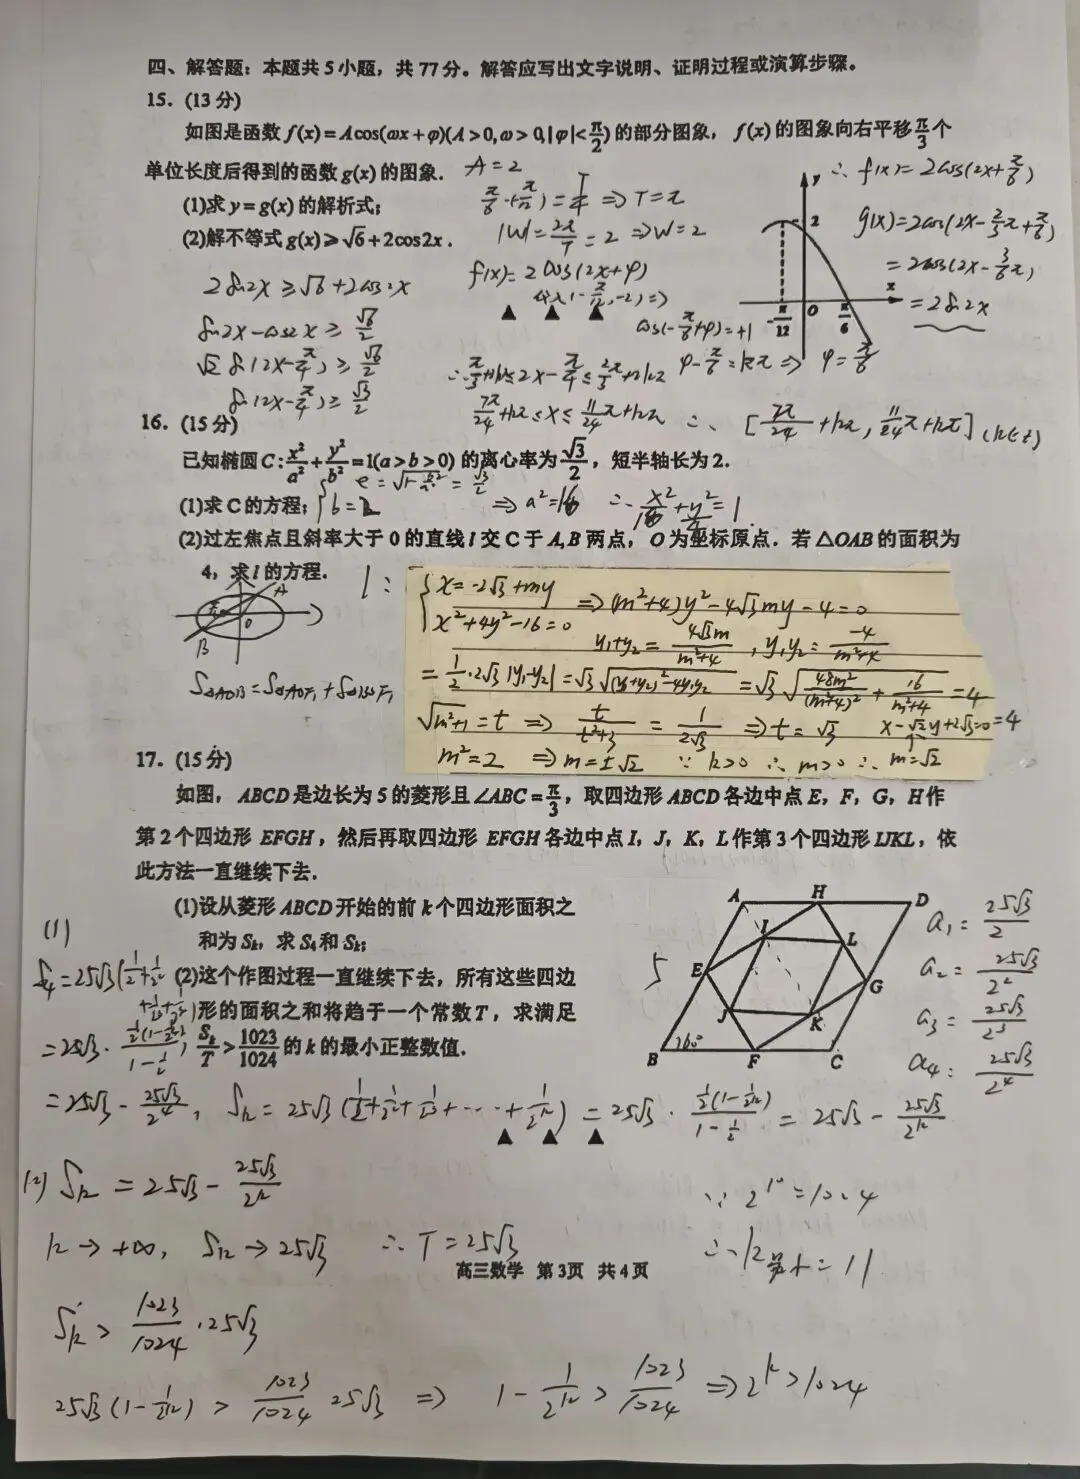 四、解答题：本题共5小题，共77分。解答应写出文字说明、证明过程或演算步骤。
15．(13分)
如图是函数f(x)=Acos(ωx+φ)(A>0,ω>0,|φ|<π/2)的部分图象，f(x)的图象向右平移π/3个
单位长度后得到的函数g(x)的图象．
A=2
∴f(x)=2cos(2x+π/6)
(1)求y=g(x)的解析式；
π/6-(-π/12)=T/4 ⇒T=π
g(x)=2cos(2x-2/3π+π/6)
(2)解不等式g(x)⩾√6+2cos2x．
|W|=2π/T=2 ⇒W=2
=2cos(2x-3/6π)
=2sin2x
2sin2x≥√6+2cos2x
f(x)=2cos(2x+φ)
sin2x-cos2x≥√6/2
cos(-π/6+φ)=+1
√2sin(2x-π/4)≥√6/2
φ-π/6=kπ⇒φ=π/6
sin(2x-π/4)≥√3/2
∴π/3+2kπ≤2x-π/4≤2/3π+2kπ
7π/24+kπ≤x≤11/24π+kπ
∴[7π/24+kπ,11/24π+kπ](k∈z)
y
2
-π/12
O
π/6
x
16．(15分)
已知椭圆C:x²/a²+y²/b²=1(a>b>0)的离心率为√3/2，短半轴长为2．
e=√1-b²/a²=√3/2
(1)求C的方程；
b=2
⇒a²=16 ∴x²/16+y²/4=1
(2)过左焦点且斜率大于0的直线l交C于A,B两点，O为坐标原点．若△OAB的面积为
4，求l的方程．
l：
A
F₁
O
B
S△AOB=S△AOF₁+S△BOF₁
x=-2√3+my
x²+4y²-16=0
⇒(m²+4)y²-4√3my-4=0
y₁+y₂=4√3m/m²+4，y₁y₂=-4/m²+4
=1/2·2√3|y₁-y₂|=√3√(y₁+y₂)²-4y₁y₂=√3√48m²/(m²+4)²+16/m²+4=4
√m²+1=t⇒t/t²+3=1/2√3⇒t=√3
x-√2y+2√3=0
=4
m²=2⇒m=±√2 ∵k>0 ∴m>0∴m=√2
17．(15分)
如图，ABCD是边长为5的菱形且∠ABC=π/3，取四边形ABCD各边中点E，F，G，H作
第2个四边形EFGH，然后再取四边形EFGH各边中点I，J，K，L作第3个四边形IJKL，依
此方法一直继续下去．
(1)设从菱形ABCD开始的前k个四边形面积之
和为Sₖ，求S₄和Sₖ；
(2)这个作图过程一直继续下去，所有这些四边
形的面积之和将趋于一个常数T，求满足
Sₖ/T>1023/1024的k的最小正整数值．
A
H
D
I
L
E
G
J
K
B
F
C
5
60°
a₁=25√3/2
a₂=25√3/2²
a₃=25√3/2³
a₄=25√3/2⁴
(1)
S₄=25√3(1/2+1/2²+1/2³+1/2⁴)
=25√3·1/2(1-1/2⁴)/1-1/2
=25√3-25√3/2⁴，Sₖ=25√3(1/2+1/2²+1/2³+···+1/2ᵏ)=25√3·1/2(1-1/2ᵏ)/1-1/2=25√3-25√3/2ᵏ
(2)Sₖ=25√3-25√3/2ᵏ
∵2¹⁰=1024
k→+∞，Sₖ→25√3 ∴T=25√3
∴k最小=11
高三数学 第3页 共4页
Sₖ>1023/1024·25√3
25√3(1-1/2ᵏ)>1023/1024 25√3⇒1-1/2ᵏ>1023/1024⇒2ᵏ>1024